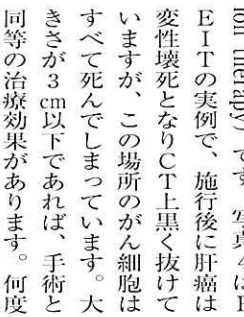 ion therapy）です。写真４はＰ
ＥＩＴの実例で、施行後に肝癌は
変性壊死となりＣＴ上黒く抜けて
いますが、この場所のがん細胞は
すべて死んでしまっています。大
きさが３cm以下であれば、手術と
同等の治療効果があります。何度